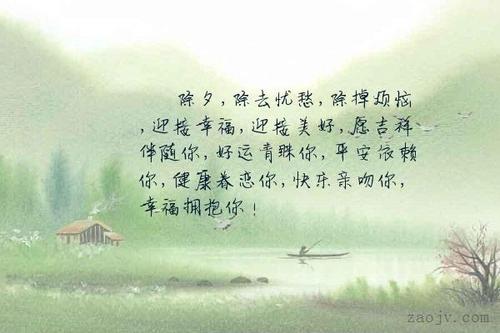 除夕,除去忧愁,除掉烦恼
,迎接幸福,迎接美好,愿吉祥
伴随你,好运青睐你,平安依赖
你,健康眷恋你,快乐亲吻你,
幸福拥抱你!
zaojv.com